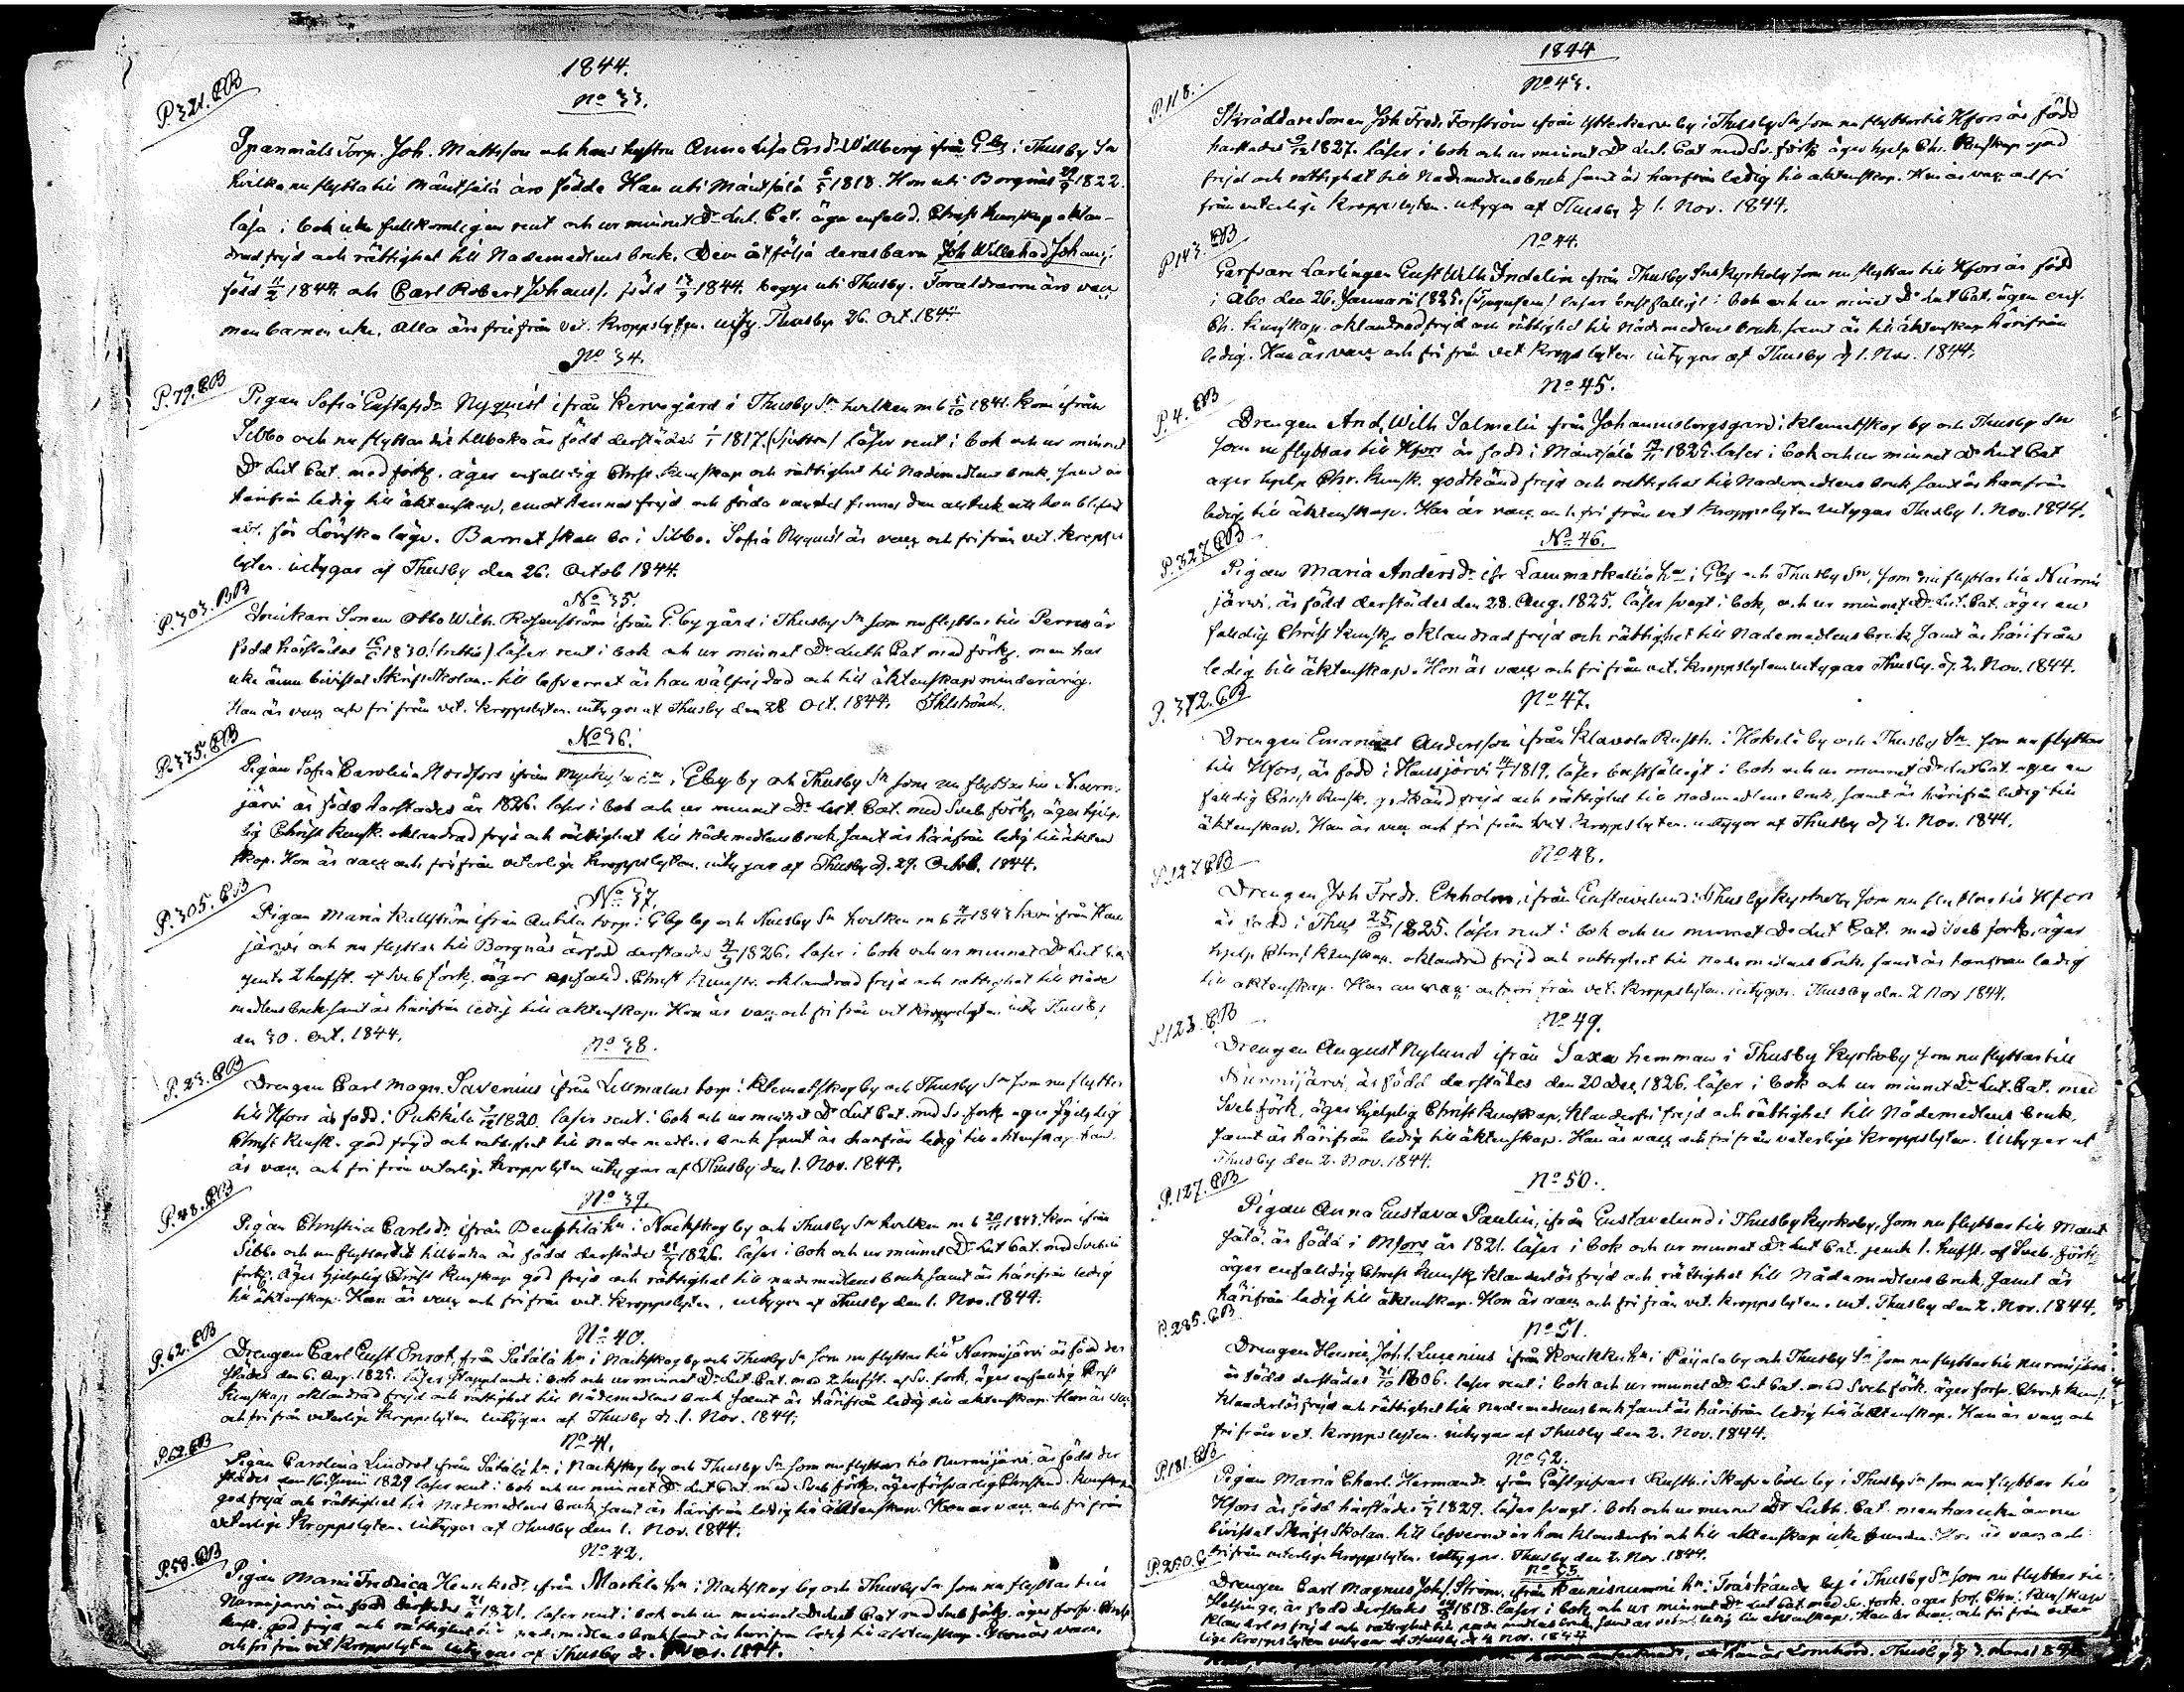 1844.
No 33.
P. 321. CB
Spanmåls Torp. Joh. Mattsson och hans hustru Anna Lisa Ersdr Willberg ifrån Gby i Thusby Sn
hvilka nu flytta till Mäntsälä äro födde Han uti Mäntsälä 1818. Hon uti Borgnäs 1822.
läsa i bok icke fullkomligen rent och ur minnet Dr Lut. Cat. äga enfald. Christ. kunskap oklan-
drad frejd och rättighet till Nademedlens bruk. Dem åtfölja deras barn Joh Willehad Johanss.
född 11/2 1844. och Carl Robert Johanss. född 1844. begge uti Thusby. Föräldrarne äro vacc.
men barnen icke. Alla äro frie från vet. kroppslyten. intyg. Thusby 26. Oct. 1844
No 34.
P. 79. CB
Pigan Sofia Gustafsdr Nyquist ifrån Kervogård i Thusby Sn hvilken m b 5/10 1841. kom ifrån
Sibbo och nu flyttar dit tillbaka är född derstädes 1817. läser rent i bok och ur minnet
Dr Lut Cat. med förkl. äger enfaldig Christ. kunskap och rättighet till Nademedlens bruk, samt är
härifrån ledig till äktenskap, emot hennes frejd och förda vandel finnes den att hon blifvit
abs. för Lönskaläge. Barnet skall bo i Sibbo. Sofia Nyquist är vacc och fri från vet. kropps
lyten. intygar af Thusby den 26. Octob 1844.
No 35.
P. 303. CB
Sonen Otto Wilh. Rosenström ifrån Gby gård i Thusby Sn som nu flyttar till Perno är
född härstädes 1830. läser rent i bok och ur minnet Dr Luth Cat med förkl. men har
icke ännu bivistat Skrift Skolan. till lefvernet är han välfrejdad och till äktenskap minderårig.
Han är vacc och fri från vet. kroppslyten. intygas af Thusby den 28 Oct. 1844. Ahlström.
No 36.
P. 335. CB
Pigan Sofia Carolina Nordfors ifrån i Gby by och Thusby Sn som nu flyttar till Nurmi
järvi är född härstädes år 1826. läser i bok och ur minnet Dr Lut. Cat. med Sveb. förkl. äger hjelp-
lig Christ. kunsk. oklandrad frejd och rättighet till Nådemedlens bruk samt är härifrån ledig till äkten
skap. Hon är vacc och fri från veterlige kroppslyten. intygar af Thusby d. 29. Octob. 1844.
No 37.
P. 305. CB
Pigan Maria Kullström ifrån Antila torp i Gby by och Thusby Sn hvilken m b 1843 kom ifrån
järvi och nu flyttar till Borgnäs är född derstädes 1826. läser i bok och ur minnet Dr Lut
jemte 2 hufst. af Sveb förk. äger enfald. Christ kunsk. oklandrad frejd och rättighet till Nåde
medlens bruk samt är härifrån ledig till äktenskap. Hon är vacc och fri från vet kroppslyten. intyg Thusby
den 30. Oct. 1844.
No 38.
P. 23. CB
Drengen Carl Magn. Savenius ifrån Lillmalus torp i Klemetskog by och Thusby Sn som nu flyttar
till Hfors är född i Pukkila 1820. läser rent i bok och ur minnet Dr Lut Cat. med Sv. förk. äger hjelplig
Christ kunsk. god frejd och rättighet till Nademedlens bruk samt är härifrån ledig till äktenskap. Han
är vacc och fri från veterlige kroppslyten intygar af Thusby den 1. Nov. 1844.
No 39.
P. 48. CB
Pigan Christina Carlsdr ifrån hn i Nackskog by och Thusby Sn hvilken m b 20/11 1843. kom ifrån
Sibbo och nu flyttar dit tillbaka är född derstädes 1826. läser i bok och ur minnet Dr Lut Cat. med Svebeli
förkl. äger hjelplig Christ kunskap god frejd och rättighet till nademedlens bruk samt är härifrån ledig
till äktenskap. Hon är vacc och fri från vet. kroppslyten, intygar af Thusby den 1. Nov. 1844.
No 40.
P. 62. CB
Drengen Carl Gust Enrot, från Sätälä hn i Nackskog by och Thusby Sn som nu flyttar till Nurmijärvi är född der
städes den 6. Aug. 1825. läser stapplande i bok och ur minnet Dr Lut Cat. med 2 hufst. af Sv. förk. äger enfaldig Christ
kunskap oklandrad frejd och rättighet till Nådemedlens bruk samt är härifrån ledig till äktenskap. Han är vacc
och fri från veterlige kroppslyten intygar af Thusby d. 1. Nov. 1844.
No 41.
P. 62. CB
Pigan Carolina Lindrot ifrån Sätälä hn i Nackskog by och Thusby Sn som nu flyttar till Nurmijärvi, är född der
städes den 16. Junii 1829 läser rent i bok och ur minnet Dr Lut Cat. med Sveb förk. äger försvarlig Christend. kunskap
god frejd och rättighet till Nademedlens bruk samt är härifrån ledig till äktenskap. Hon är vacc. och fri från
veterlige kroppslyten. intygar af Thusby den 1. Nov. 1844.
No 42.
P. 58. CB
Pigan Maria Fredrica Henricsdr ifrån Mattila hn i Nackskog by och Thusby Sn som nu flyttar till
Nurmijärvi är född derstädes 1821. läser rent i bok och ur minnet Dr Lut Cat med Sveb förk. äger försv. Christ
kunsk. god frejd och rättighet till nademedlens bruk samt är härifrån ledig till äktenskap. Hon är vacc.
och fri från vet kroppslyten intygar af Thusby d. Nov. 1844.
1844
No 43.
P. 118.
Skräddare Sonen Joh Fredr Forström ifrån Ytterkervo by i Thusby Sn som nu flyttar till Hfors är född
härstädes 1827. läser i bok och ur minnet Dr Lut. Cat med Sv. förk äger hjelp Chr. kunskap god
frejd och rättighet till Nademedlens bruk samt är härifrån ledig till äktenskap. Han är vacc och fri
från veterlige kroppslyten. intygar af Thusby d 1. Nov. 1844.
No 44.
P. 143. CB
Garfvare Lärlingen Gust Wilh Indelin ifrån Thusby Sns kyrkoby som nu flyttar till Hfors är född
i Åbo den 26. Januari 1825. läser i bok och ur minnet Dr Lut Cat. ägen enf.
Ch. kunskap. oklandrad frejd och rättighet till Nådemedlens bruk, samt är till äktenskap härifrån
ledig. Han är vacc och fri från vet kroppslyten. intygar af Thusby d 1. Nov. 1844.
No 45.
P. 4. CB
Drengen And. Wilh Salmelin från Johannisborgsgård i Klemetskog by och Thusby Sn
som nu flyttar till Hfors är född i Mäntsälä 1825. läser i bok och ur minnet Dr Lut Cat
äger hjelp Chr. kunsk. godkänd frejd och rättighet till Nademedlens bruk samt är härifrån
ledig till äktenskap. Han är vacc och fri från vet kroppslyten intygar Thusby 1. Nov. 1844.
No 46.
P. 327. CB
Pigan Maria Andersdr ifr Lammaskallio hn i Gby och Thusby Sn, som nu flyttar till Nurmi
järvi, är född derstädes den 28. Aug. 1825. läser svagt i bok, och ur minnet Dr. Lut. Cat. äger en
faldig Christ kunsk. oklandrad frejd och rättighet till Nademedlens bruk samt är härifrån
ledig till äktenskap. Hon är vacc och fri från vet. kroppslyten intygar Thusby. d. 2. Nov. 1844.
No 47.
P. 372. CB
Drengen Emanuel Andersson ifrån Klavola Rusth. i Hokela by och Thusby Sn som nu flyttar
till Hfors, är född i Hausjärvi 1819. läser i bok och ur minnet Dr Lut Cat. äger en
faldig Christ kunsk. godkänd frejd och rättighet till nademedlens bruk, samt är härifrån ledig till
äktenskap. Han är vacc och fri från vet kroppslyten. intygar af Thusby d 2. Nov. 1844.
No 48.
P. 127 CB
Drengen Joh Fredr. Ekholm, ifrån Gustavelund i Thusby kyrkoby som nu flyttar till Hfors
är född i Thus 25/6 1825. läser rent i bok och ur minnet Dr Lut Cat. med Sveb förk. äger
hjelp Christ kunskap. oklandrad frejd och rättighet till Nademedlens bruk samt är härifrån ledig
till äktenskap. Han är vacc och fri från vet. kroppslyten. intygar. Thusby den 2 Nov 1844.
No 49.
P. 123. CB
Drengen August Nylund ifrån Saxa hemman i Thusby kyrkoby som nu flyttar till
Nurmijärvi, är född derstädes den 20 Dec. 1826. läser i bok och ur minnet Dr Lut. Cat. med
Sveb förk, äger hjelplig Christ kunskap, klanderfri frejd och rättighet till Nådemedlens bruk,
samt är härifrån ledig till äktenskap. Han är vacc och fri från veterlige kroppslyten. Intygar af
Thusby den 2. Nov. 1844.
No 50.
P. 127. CB
Pigan Anna Gustava Paulin, ifrån Gustavelund i Thusby kyrkoby, som nu flyttar till Mänt
sälä. är född i Hfors år 1821. läser i bok och ur minnet Dr Lut Cat. jemte 1. hufst. af Sveb. förk.
äger enfaldig Christ kunsk klanderlös frejd och rättighet till Nådemedlens bruk. samt är
härifrån ledig till äktenskap. Hon är vacc och fri från vet. kroppslyten. int. Thusby den 2. Nov. 1844.
No 51.
P. 285. CB
Drengen Henric Joh. s. Lucenius ifrån Koukku hn i Paijala by och Thusby Sn som nu flyttar till Nurmijärvi
är född derstädes 1806. läser rent i bok och ur minnet Dr Lut Cat. med Sveb förk. äger försv. Christ kunsk.
klanderlös frejd och rättighet till Nademedlens bruk samt är härifrån ledig till äktenskap. Han är vacc och
fri från vet. kroppslyten. intygar af Thusby den 2. Nov. 1844.
No 52.
P. 181. CB
Pigan Maria Charl. Hermansdr ifrån Gästgifvars Rusth. i Skafvaböle by i Thusby Sn som nu flyttar till
Hfors är född härstädes 1829. läser svagt i bok och ur minnet Dr Luth. Cat. men har icke ännu
bivistat Skrift Skolan. till lefvernet är hon klanderfri och till äktenskap icke bunden. Hon är vacc och
fri från veterlige kroppslyten. intygas. Thusby den 2. Nov. 1844.
No 53
P. 250.
Drengen Carl Magnus Joh. s. Ström, ifrån Kainisnummi hn i Träskända by i Thusby Sn som nu flyttar till
Helsinge, är född derstädes 1818. läser i bok och ur minnet Dr Lut Cat. med Sv. förk. äger förs. Chr. kunskap
klanderlös frejd och rättighet till nademedlens bruk, samt är ledig till äktenskap. Han är vacc. och fri från veter
lige kroppslyten intygar af Thusby d 4 Nov. 1844
Thusby d 3. Mars 184